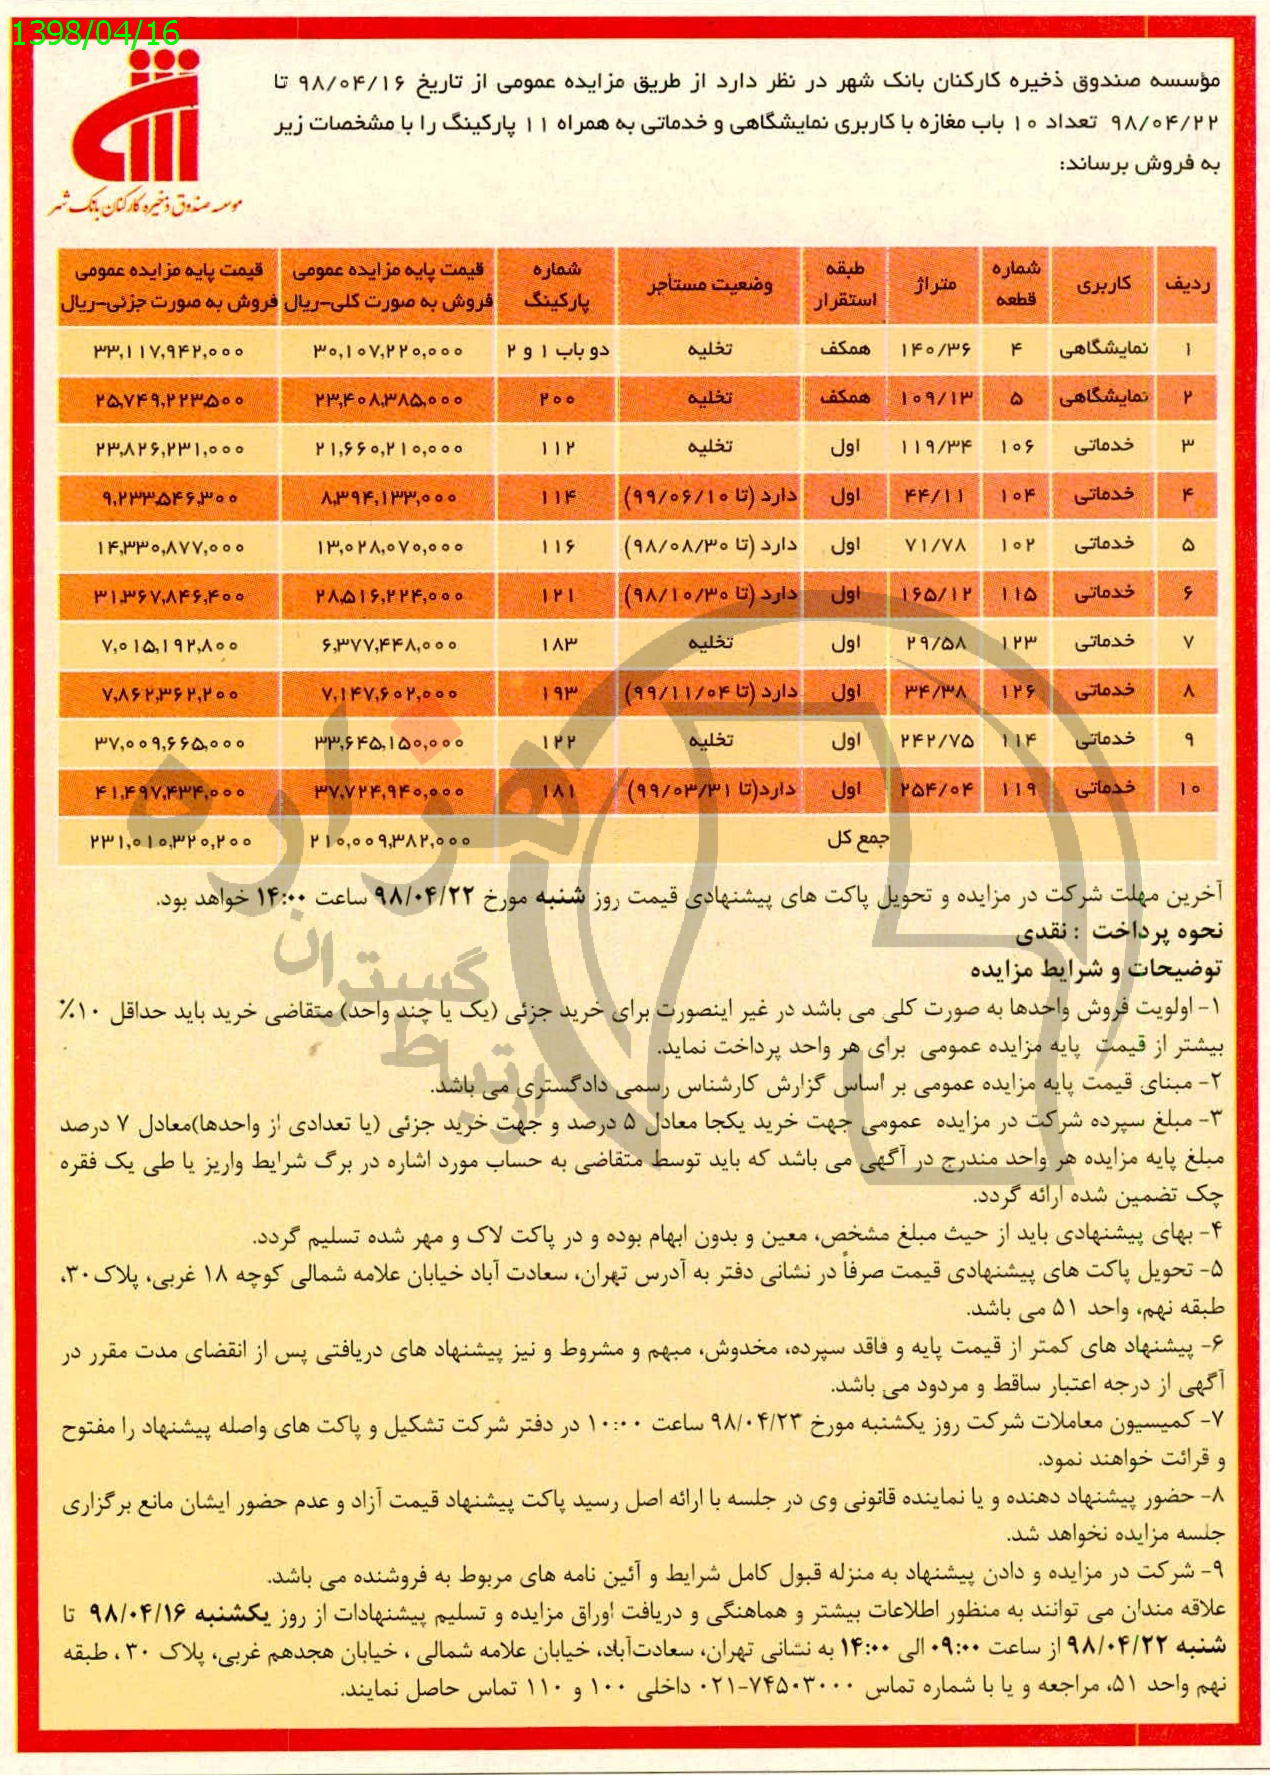 1398/04/16
موسسه صندوق ذخیره کارکنان بانک شهر
مؤسسه صندوق ذخیره کارکنان بانک شهر در نظر دارد از طریق مزایده عمومی از تاریخ ۹۸/۰۴/۱۶ تا
۹۸/۰۴/۲۲ تعداد ۱۰ باب مغازه با کاربری نمایشگاهی و خدماتی به همراه ۱۱ پارکینگ را با مشخصات زیر
به فروش برساند:
ردیف کاربری شماره قطعه متراژ طبقه استقرار وضعیت مستأجر شماره پارکینگ قیمت پایه مزایده عمومی فروش به صورت کلی-ریال قیمت پایه مزایده عمومی فروش به صورت جزئی-ریال
۱ نمایشگاهی ۴ ۱۴۰/۳۶ همکف تخلیه دو باب ۱ و ۲ ۳۰,۱۰۷,۲۲۰,۰۰۰ ۳۳,۱۱۷,۹۴۲,۰۰۰
۲ نمایشگاهی ۵ ۱۰۹/۱۳ همکف تخلیه ۲۰۰ ۲۳,۴۰۸,۳۸۵,۰۰۰ ۲۵,۷۴۹,۲۲۳,۵۰۰
۳ خدماتی ۱۰۶ ۱۱۹/۳۴ اول تخلیه ۱۱۲ ۲۱,۶۶۰,۲۱۰,۰۰۰ ۲۳,۸۲۶,۲۳۱,۰۰۰
۴ خدماتی ۱۰۴ ۴۴/۱۱ اول دارد (تا ۹۹/۰۶/۱۰) ۱۱۴ ۸,۳۹۴,۱۳۳,۰۰۰ ۹,۲۳۳,۵۴۶,۳۰۰
۵ خدماتی ۱۰۲ ۷۱/۷۸ اول دارد (تا ۹۸/۰۸/۳۰) ۱۱۶ ۱۳,۰۲۸,۰۷۰,۰۰۰ ۱۴,۳۳۰,۸۷۷,۰۰۰
۶ خدماتی ۱۱۵ ۱۶۵/۱۲ اول دارد (تا ۹۸/۱۰/۳۰) ۱۲۱ ۲۸,۵۱۶,۲۲۴,۰۰۰ ۳۱,۳۶۷,۸۴۶,۴۰۰
۷ خدماتی ۱۲۳ ۲۹/۵۸ اول تخلیه ۱۸۳ ۶,۳۷۷,۴۴۸,۰۰۰ ۷,۰۱۵,۱۹۲,۸۰۰
۸ خدماتی ۱۲۶ ۳۴/۳۸ اول دارد (تا ۹۹/۱۱/۰۴) ۱۹۳ ۷,۱۴۷,۶۰۲,۰۰۰ ۷,۸۶۲,۳۶۲,۲۰۰
۹ خدماتی ۱۱۴ ۲۴۲/۷۵ اول تخلیه ۱۲۲ ۳۳,۶۴۵,۱۵۰,۰۰۰ ۳۷,۰۰۹,۶۶۵,۰۰۰
۱۰ خدماتی ۱۱۹ ۲۵۴/۰۴ اول دارد(تا ۹۹/۰۳/۳۱) ۱۸۱ ۳۷,۷۲۴,۹۴۰,۰۰۰ ۴۱,۴۹۷,۴۳۴,۰۰۰
جمع کل ۲۱۰,۰۰۹,۳۸۲,۰۰۰ ۲۳۱,۰۱۰,۳۲۰,۲۰۰
آخرین مهلت شرکت در مزایده و تحویل پاکت های پیشنهادی قیمت روز شنبه مورخ ۹۸/۰۴/۲۲ ساعت ۱۴:۰۰ خواهد بود.
نحوه پرداخت : نقدی
توضیحات و شرایط مزایده
۱- اولویت فروش واحدها به صورت کلی می باشد در غیر اینصورت برای خرید جزئی (یک یا چند واحد) متقاضی خرید باید حداقل ۱۰٪
بیشتر از قیمت پایه مزایده عمومی برای هر واحد پرداخت نماید.
۲- مبنای قیمت پایه مزایده عمومی بر اساس گزارش کارشناس رسمی دادگستری می باشد.
۳- مبلغ سپرده شرکت در مزایده عمومی جهت خرید یکجا معادل ۵ درصد و جهت خرید جزئی (یا تعدادی از واحدها)معادل ۷ درصد
مبلغ پایه مزایده هر واحد مندرج در آگهی می باشد که باید توسط متقاضی به حساب مورد اشاره در برگ شرایط واریز یا طی یک فقره
چک تضمین شده ارائه گردد.
۴- بهای پیشنهادی باید از حیث مبلغ مشخص، معین و بدون ابهام بوده و در پاکت لاک و مهر شده تسلیم گردد.
۵- تحویل پاکت های پیشنهادی قیمت صرفاً در نشانی دفتر به آدرس تهران، سعادت آباد خیابان علامه شمالی کوچه ۱۸ غربی، پلاک ۳۰،
طبقه نهم، واحد ۵۱ می باشد.
۶- پیشنهاد های کمتر از قیمت پایه و فاقد سپرده، مخدوش، مبهم و مشروط و نیز پیشنهاد های دریافتی پس از انقضای مدت مقرر در
آگهی از درجه اعتبار ساقط و مردود می باشد.
۷- کمیسیون معاملات شرکت روز یکشنبه مورخ ۹۸/۰۴/۲۳ ساعت ۱۰:۰۰ در دفتر شرکت تشکیل و پاکت های واصله پیشنهاد را مفتوح
و قرائت خواهند نمود.
۸- حضور پیشنهاد دهنده و یا نماینده قانونی وی در جلسه با ارائه اصل رسید پاکت پیشنهاد قیمت آزاد و عدم حضور ایشان مانع برگزاری
جلسه مزایده نخواهد شد.
۹- شرکت در مزایده و دادن پیشنهاد به منزله قبول کامل شرایط و آئین نامه های مربوط به فروشنده می باشد.
علاقه مندان می توانند به منظور اطلاعات بیشتر و هماهنگی و دریافت اوراق مزایده و تسلیم پیشنهادات از روز یکشنبه ۹۸/۰۴/۱۶ تا
شنبه ۹۸/۰۴/۲۲ از ساعت ۰۹:۰۰ الی ۱۴:۰۰ به نشانی تهران، سعادت‌آباد، خیابان علامه شمالی ، خیابان هجدهم غربی، پلاک ۳۰ ، طبقه
نهم واحد ۵۱، مراجعه و یا با شماره تماس ۷۴۵۰۳۰۰۰-۰۲۱ داخلی ۱۰۰ و ۱۱۰ تماس حاصل نمایند.
هزاره
گستران
ارتباط